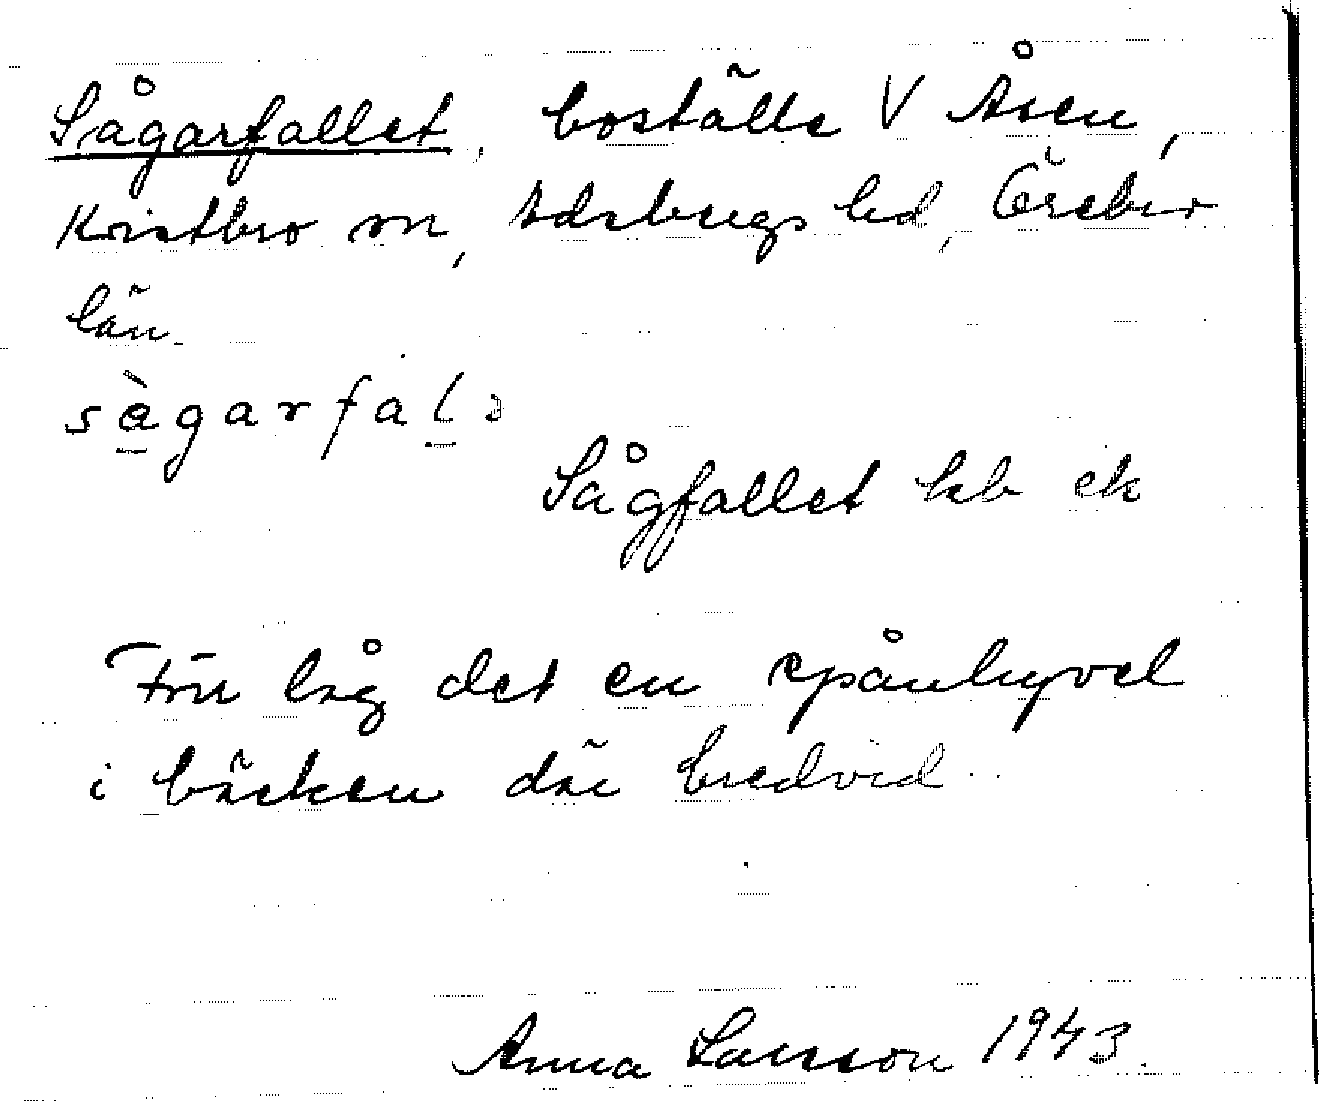 Sågarfallet, boställe V Åsen,
Kvistbro sn, Edsbergs hd, Örebro
län.
sågarfalə
Sågfallet hb ek
Förr låg det en spånhyvel
i bäcken där bredvid.
Anna Larsson 1943.